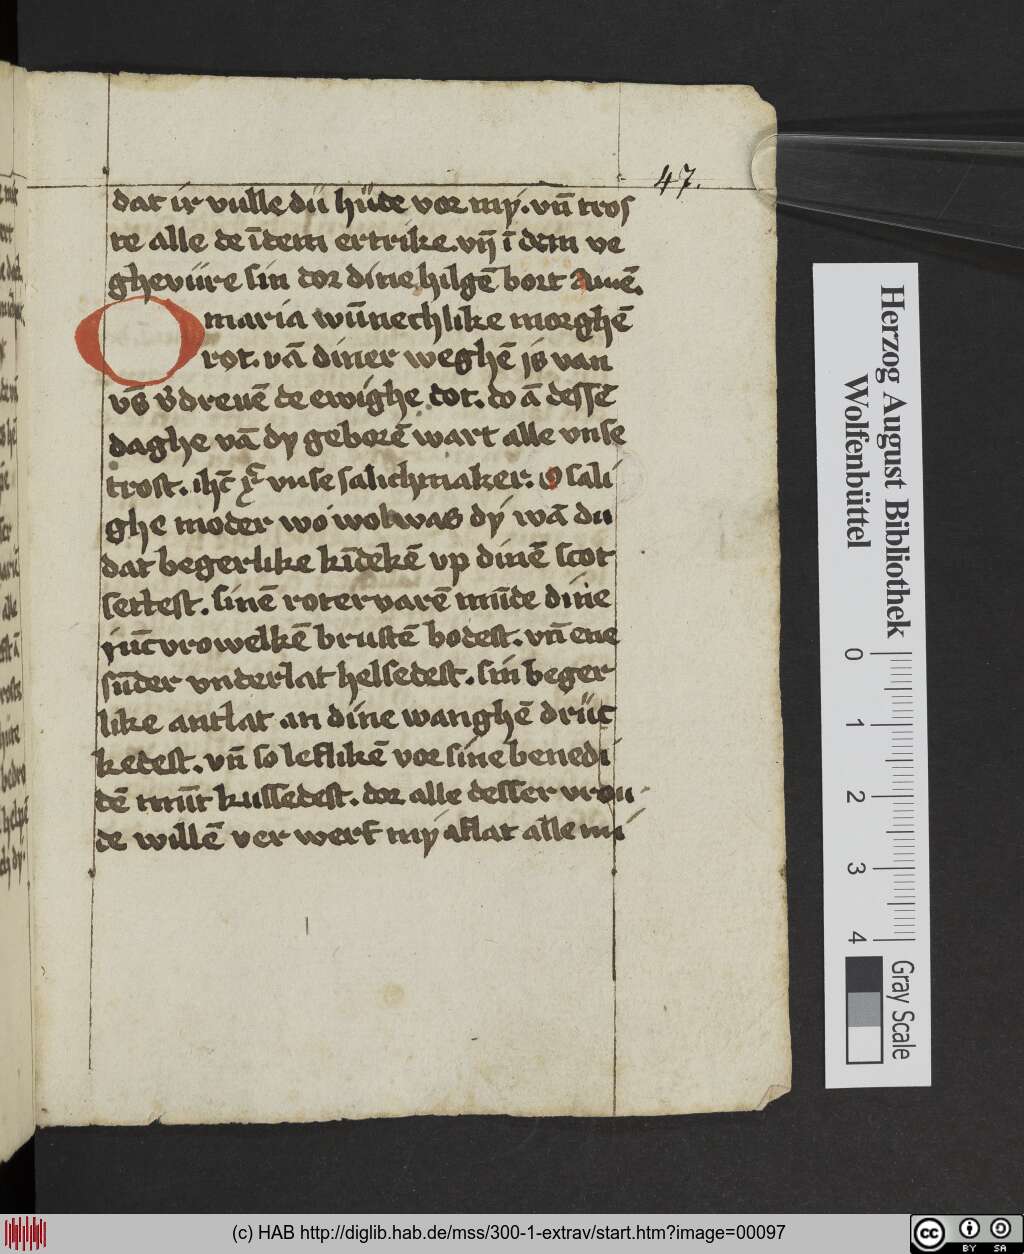 47.
dat ir vulle du hüde vor my. vn̄ tros
te alle de ī dem ertrike. vn̄ ī dem ve
ghevüre sin dor dine hilgē bort amē.
O maria wūnechlike morghē
rot. vā diner weghē is van
vs vdreuē de ewighe dot. do ā dessē
daghe vā dy geborē wart alle vnse
trost. ihc xc vnse salichmaker. o sali
ghe moder wo wol was dy wā du
dat begerlike kīdekē vp dinē scot
settest. sinē roter varē mūde dine
jūcvrowelkē brustē bodest. vn̄ ene
sūder vnderlat helsedest. sin beger
like antlat an dine wanghē drüc
kedest. vn̄ so leflikē vor sine benedi
dē mūt kussedest. dor alle desser vrou
de willē ver werf my aflat alle mi
Herzog August Bibliothek
Wolfenbüttel
0 1 2 3 4
Gray Scale
(c) HAB http://diglib.hab.de/mss/300-1-extrav/start.htm?image=00097
cc BY SA